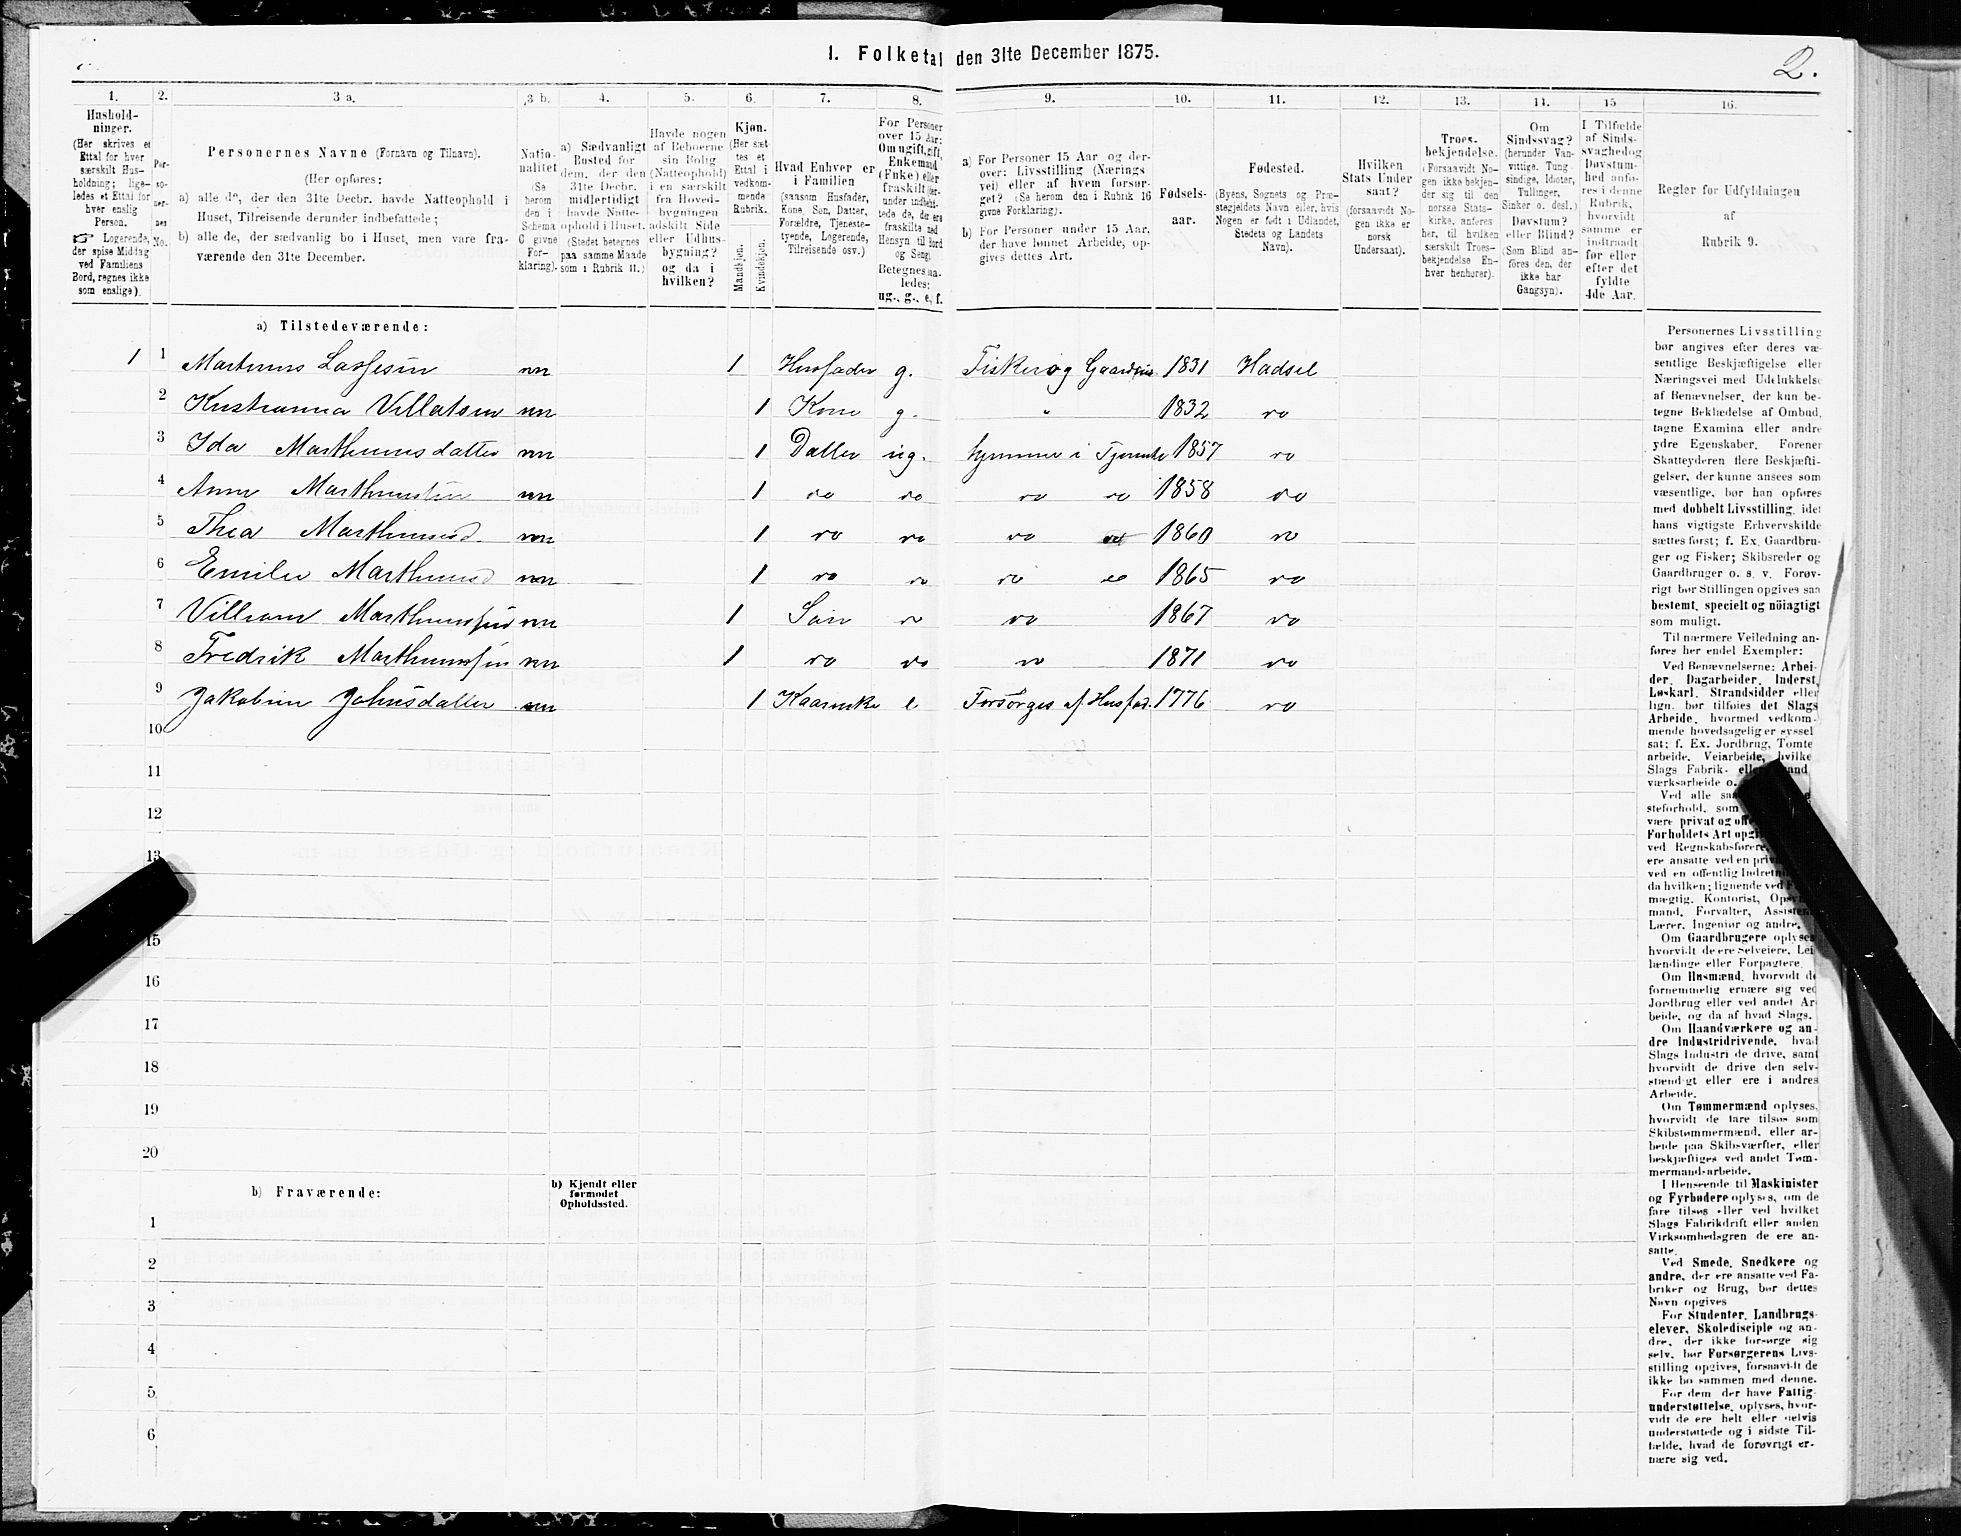 1. Folketal den 31te December 1875.
2.
1. 2. 3 a. 3 b. 4. 5. 6. 7. 8. 9. 10. 11. 12. 13. 14. 15 16.
Hushold-
ninger.
(Her skrives et
Ettal for hver
særskilt Hus-
holdning; lige-
ledes et Ettal for
hver enslig
Person.
☞ Logerende,
der spise Middag
ved Familiens
Bord, regnes ikke
som enslige).
Per-
so-
ner-
nes
No.
Personernes Navne (Fornavn og Tilnavn).
(Her opføres:
a) alle de, der den 31te Decbr. havde Natteophold i
Huset, Tilreisende derunder indbefattede;
b) alle de, der sædvanlig bo i Huset, men vare fra-
værende den 31te December.
Natio-
nalitet
(Se
herom
den i
Schema
6 givne
For-
klaring).
a) Sædvanligt
Bosted for
dem, der den
31te Decbr.
midlertidigt
havde Natte-
ophold i Huset.
(Stedet betegnes
paa samme Maade
som i Rubrik 11.)
Havde nogen
af Beboerne
sin Bolig
(Natteophold)
i en særskilt
fra Hoved-
bygningen
adskilt Side
eller Udhus-
bygning?
og da i
hvilken?
Kjøn.
(Her sæt
tes et
Ettal i
vedkom-
mende
Rubrik.
Mandkjøn.
Kvindekjøn.
Hvad Enhver er
i Familien
(saasom Husfader,
Kone, Søn, Datter,
Forældre, Tjeneste-
tyende, Logerende,
Tilreisende osv.)
For Personer
over 15 Aar:
Om ugift, gift,
Enkemand
(Enke) eller
fraskilt (her-
under indbefat-
tede de, der ere
fraskilte med
Hensyn til Bord
og Seng)
Betegnes saa-
ledes:
ug., g., e, f.
a) For Personer 15 Aar og der-
over: Livsstilling (Nærings
vei) eller af hvem forsør-
get? (Se herom den i Rubrik 16
givne Forklaring).
b) For Personer under 15 Aar,
der have lønnet Arbeide, op-
gives dettes Art.
Fødsels-
aar.
Fødested.
(Byens, Sognets og Præ-
stegjeldets Navn eller, hvis
Nogen er født i Udlandet,
Stedets og Landets
Navn).
Hvilken
Stats Under
saat?
(forsaavidt No-
gen ikke er
norsk
Undersaat).
Troes-
bekjendelse.
(Forsaavidt No-
gen ikke bekjen-
der sig til den
norske Stats-
kirke, anføres
her, til hvilken
særskilt Troes-
bekjendelse En-
hver henhører).
Om
Sindssvag?
(herunder Van-
vittige, Tung
sindige, Idioter,
Tullinger,
Sinker o. desl.)
Døvstum?
eller Blind?
(Som Blind an-
føres den, der
ikke har
Gangsyn).
I Tilfælde
af Sinds-
svaghed og
Døvstum-
hed anfø-
res i denne
Rubrik,
hvorvidt
samme er
indtraadt
før eller
efter det
fyldte
4de Aar.
Regler for Udfyldningen
af
Rubrik 9.
a) Tilstedeværende:
1 1 Martinus Lassesen nn 1 Husfader g. Fisker og Gaardbr. 1831 Hadsel
2 Kristianna Villatsen nn 1 Kone g. " 1832 do
3 Ida Marthinusdatter nn 1 Datter ug. hjemme i Tjeneste 1857 do
4 Anne nn 1 do do do do 1858 do
5 Thea Marthinusd. nn 1 do do do 1860 do
6 Emilie Marthinusd nn 1 do do do do 1865 do
7 Villiam Marthinussen nn 1 Søn do do 1867 do
8 Fredrik Marthinussen nn 1 do do do 1871 do
9 Jakobine Johnsdatter nn 1 e Forsørges af Husfad. 1776 do
10
11
12
13
15
16
17
18
19
20
b) Fraværende:
b) Kjendt eller
formodet
Opholdssted.
1
2
3
4
5
6
Personernes Livsstilling
bør angives efter deres væ-
sentlige Beskjæftigelse eller
Næringsvei med Udelukkelse
af Benævnelser, der kun be-
tegne Beklædelse af Ombud,
tagne Examina eller andre
ydre Egenskaber. Forener
Skatteyderen flere Beskjæfti-
gelser, der kunne ansees som
væsentlige, bør han opføres
med dobbelt Livsstilling, idet
hans vigtigste Erhvervskilde
sættes først; f. Ex. Gaardbru-
ger og Fisker; Skibsreder og
Gaardbruger o. s. v. Forøv-
rigt bør Stillingen opgives saa
bestemt, specielt og nöiagtigt
som muligt.
Til nærmere Veiledning an-
føres her endel Exempler:
Ved Benævnelserne: Arbei-
der, Dagarbeider, Inderst,
Løskarl, Strandsidder eller
lign. bør tilføies det Slags
Arbeide, hvormed vedkom-
mende hovedsagelig er syssel
sat; f. Ex. Jordbrug, Tomte
arbeide, Veiarbeide, hvilke
Slags Fabrik-
værksarbeide o.
Ved alle
steforhold, som
være privat og
Forholdets Art
ved Regnskabsførere,
ere ansatte ved en
ved en offentlig
da hvilken; lignende ved
mægtig, Kontorist,
mand, Forvalter,
Lærer, Ingeniør og andre.
Om Gaardbrugere oplyses,
hvorvidt de ere Selveiere, Lei
lændinge eller Forpagtere.
Om Husmænd, hvorvidt de
fornemmelig ernære sig ved
Jordbrug eller ved andet Ar
beide, og da af hvad Slags.
Om Haandværkere og an-
dre Industridrivende, hvad
Slags Industri de drive, samt
hvorvidt de drive den selv-
stændigt eller ere i andres
Arbeide.
Om Tømmermænd oplyses,
hvorvidt de fare tilsøs som
Skibstømmermænd, eller ar-
beide paa Skibsværfter, eller
beskjæftiges ved andet Tøm-
mermand-arbeide.
I Henseende til Maskinister
og Fyrbødere oplyses, om de
fare tilsøs eller ved hvilket
Slags Fabrikdrift eller anden
Virksomhedsgren de ere an-
satte.
Ved Smede, Snedkere og
andre, der ere ansatte ved Fa-
briker og Brug, bør dettes
Navn opgives
For Studenter, Landbrugs-
elever, Skoledisciple og an-
dre, der ikke forsørge sig
selv, bør Forsørgerens Livs-
stilling opgives, forsaavidt de
ikke bo sammen med denne.
For dem der have Fattig-
understøttelse, oplyses, hvor-
vidt de ere helt eller delvis
understøttede og i sidste Til-
fælde, hvad de forøvrigt er-
nære sig ved.